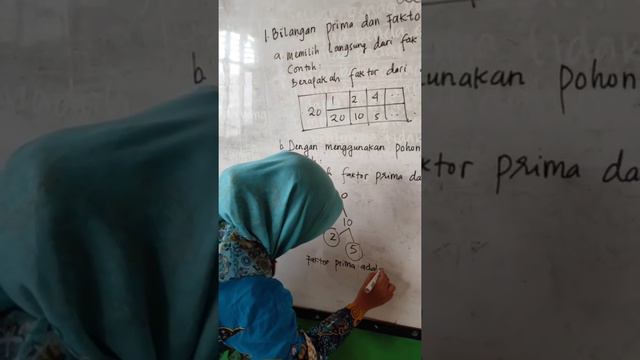 1. Bilangan prima dan Fakto
a. Memilih langsung dari fak
Contoh:
Berapakah faktor dari
20 1 2 4 ..
20 10 5 ..
b. Dengan menggunakan pohon
faktor prima da
0
10
2
5
Faktor prima adal